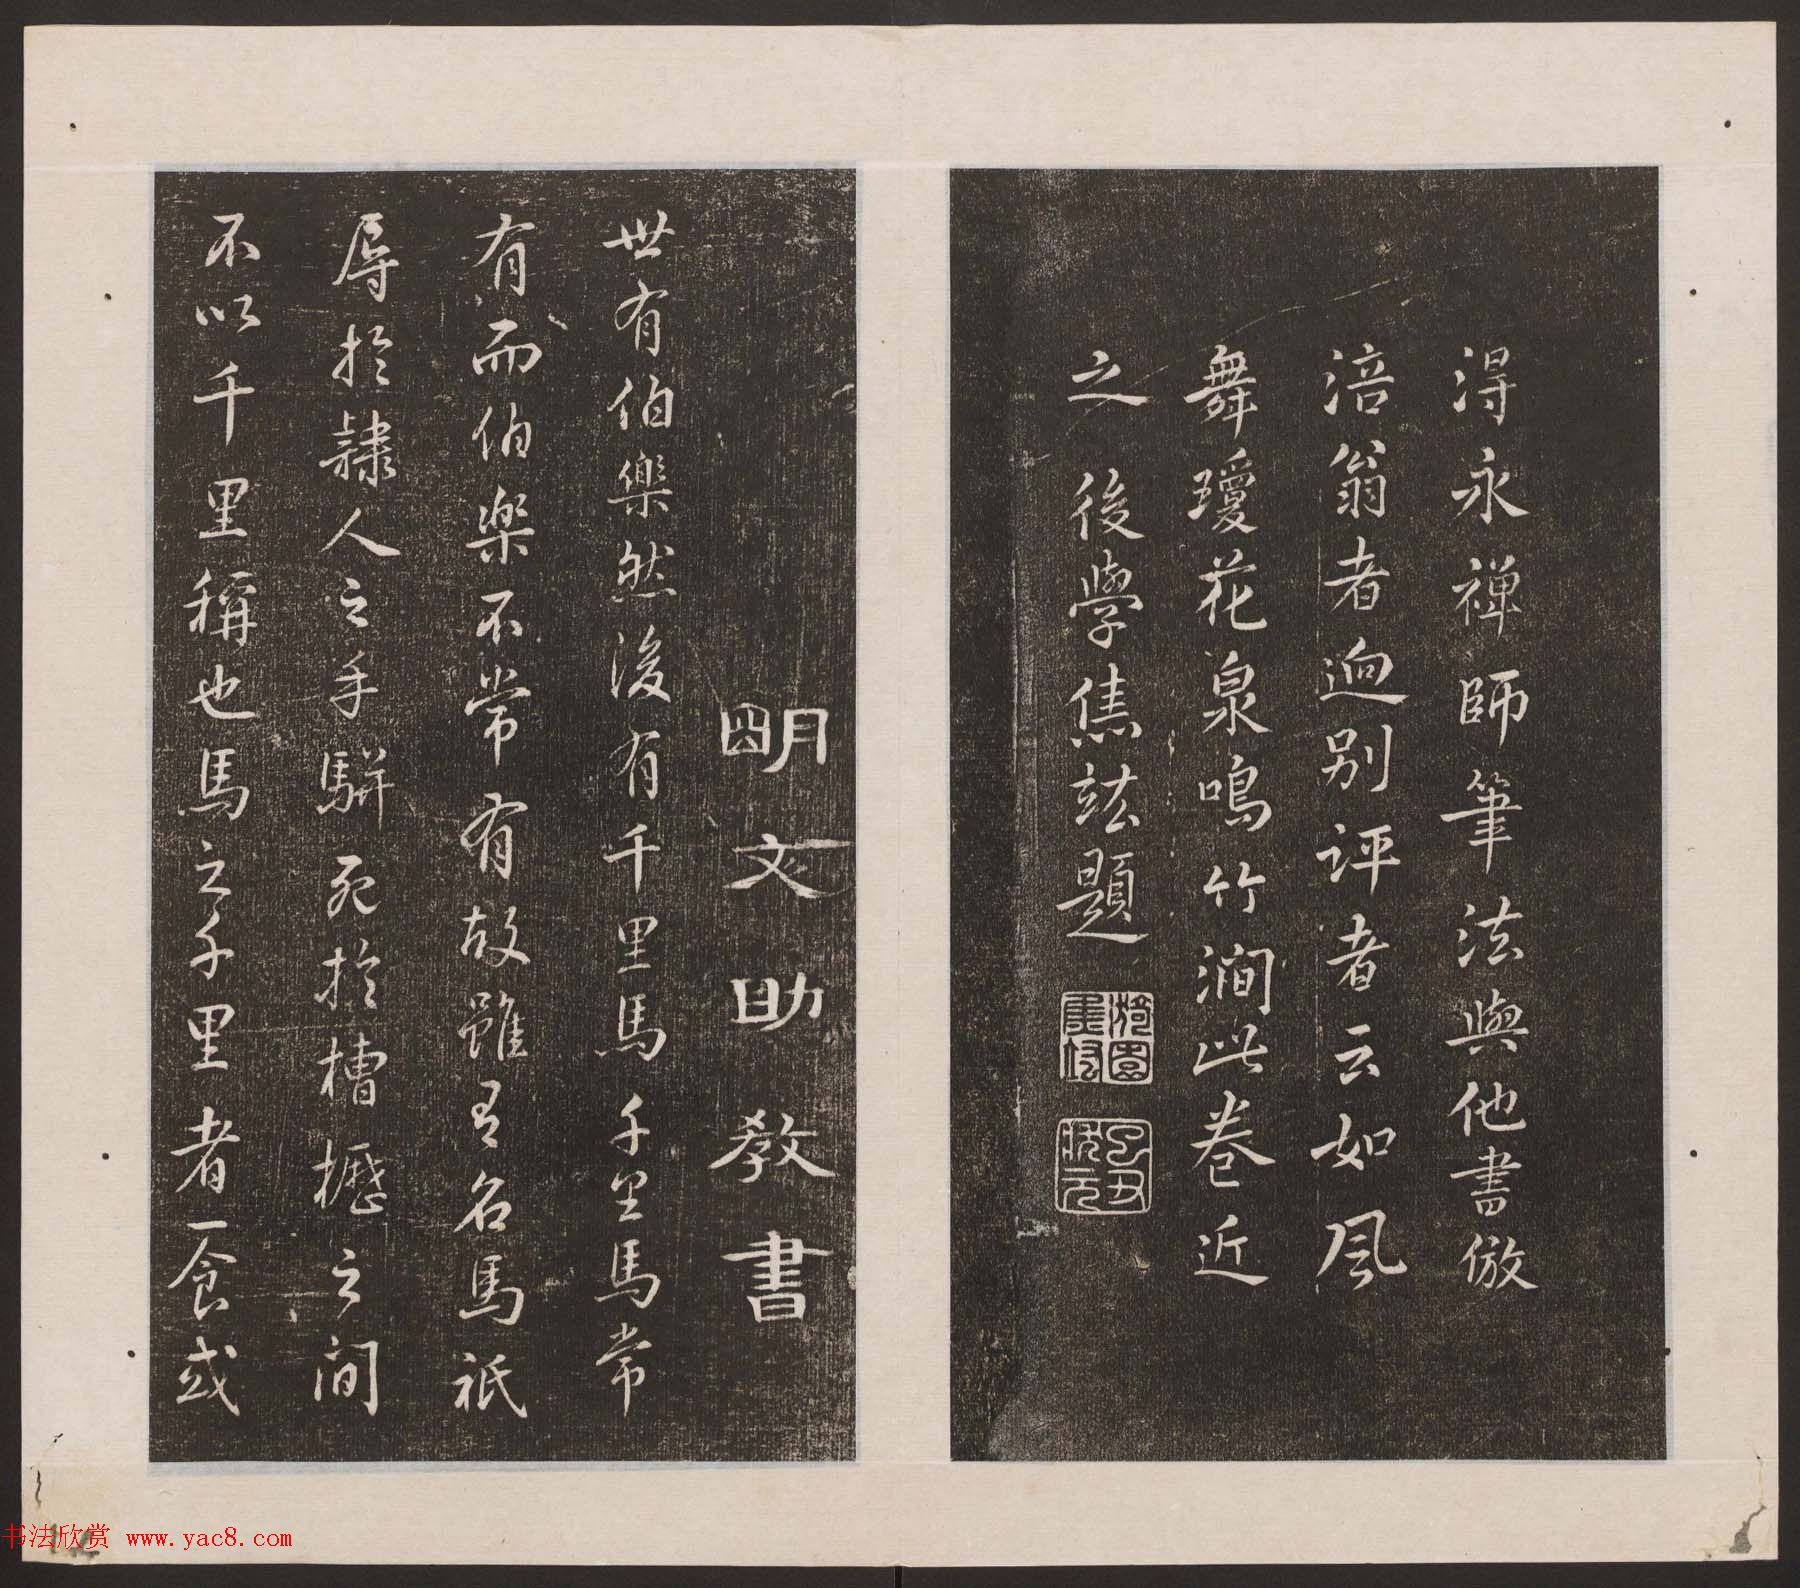 淂永禅師筆法與他書倣
涪翁者迥别评者云如风
舞瓊花泉鳴竹澗此卷近
之 後學焦竑題
明文助教書
世有伯樂然後有千里馬千里馬常
有而伯樂不常有故雖有名馬祇
辱於隸人之手駢死於槽櫪之間
不以千里稱也馬之千里者一食或
书法欣赏 www.yac8.com